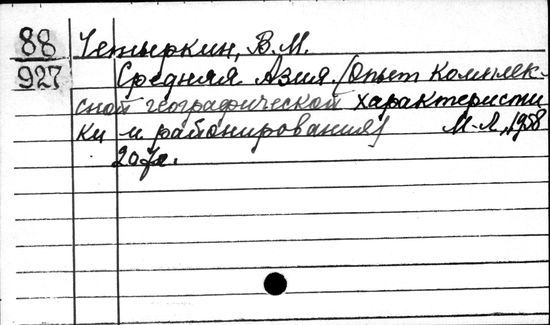 88 Четыркин, В.М.
927 Средняя Азия. (Опыт комплек-
сной географической характеристи
ки и районирования) М-Л, 1958
207с.